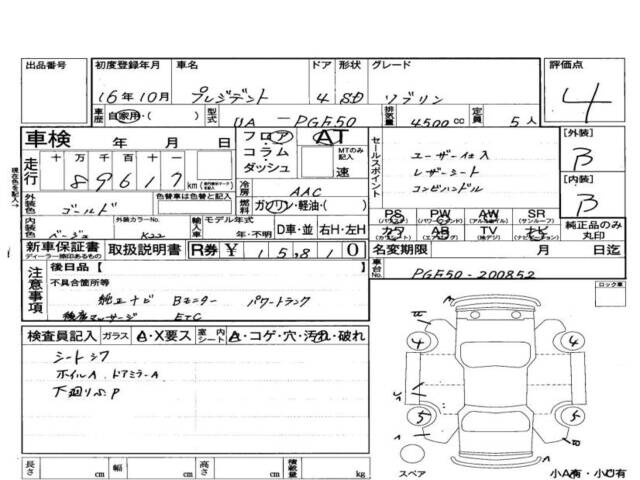 出品番号 初度登録年月 車名 ドア 形状 グレード 評価点
16年10月 プレジデント 4 SD ソブリン 4
車歴 自家用・( ) 型式 UA-PGF50 排気量 4500cc 定員 5人
車検 年 月 日 フロア コラム ダッシュ AT MTのみ記入 速
セールスポイント
ユーザー仕入
レザーシート
コンビハンドル
[外装] B
[内装] B
現在色を記入→
走行 十万千百十一
89617 km
冷房 AAC
燃料 ガソリン・軽油・( )
外装色 ゴールド 色替車は色替と記入
内装色 ベージュ 外装カラーNo. K22 輸入車 モデル年式 年・不明 D車・並 右H・左H
PS PW AW SR
(パワーステアリング) (パワーウインド) (アルミホイル) (サンルーフ)
カワ AB TV ナビ
(エアバッグ) (地デジ) (ナビゲーション)
純正品のみ丸印
新車保証書 取扱説明書 R券 ¥ 15810
ディーラー捺印あるもの
名変期限 月 日迄
注意事項
後日品[ ]
不具合箇所等
純正ナビ Bモニター パワートランク
ETC
車台No. PGF50-200852
ロック車
検査員記入 ガラス A・X要ス 室内シート A・コゲ・穴・汚れ・破れ
シートシワ
ホイルA ドアミラーA
下廻りS.P
4 4
5 5
スペア
長さ cm 幅 cm 高さ cm 積載量 kg
小A有・小U有